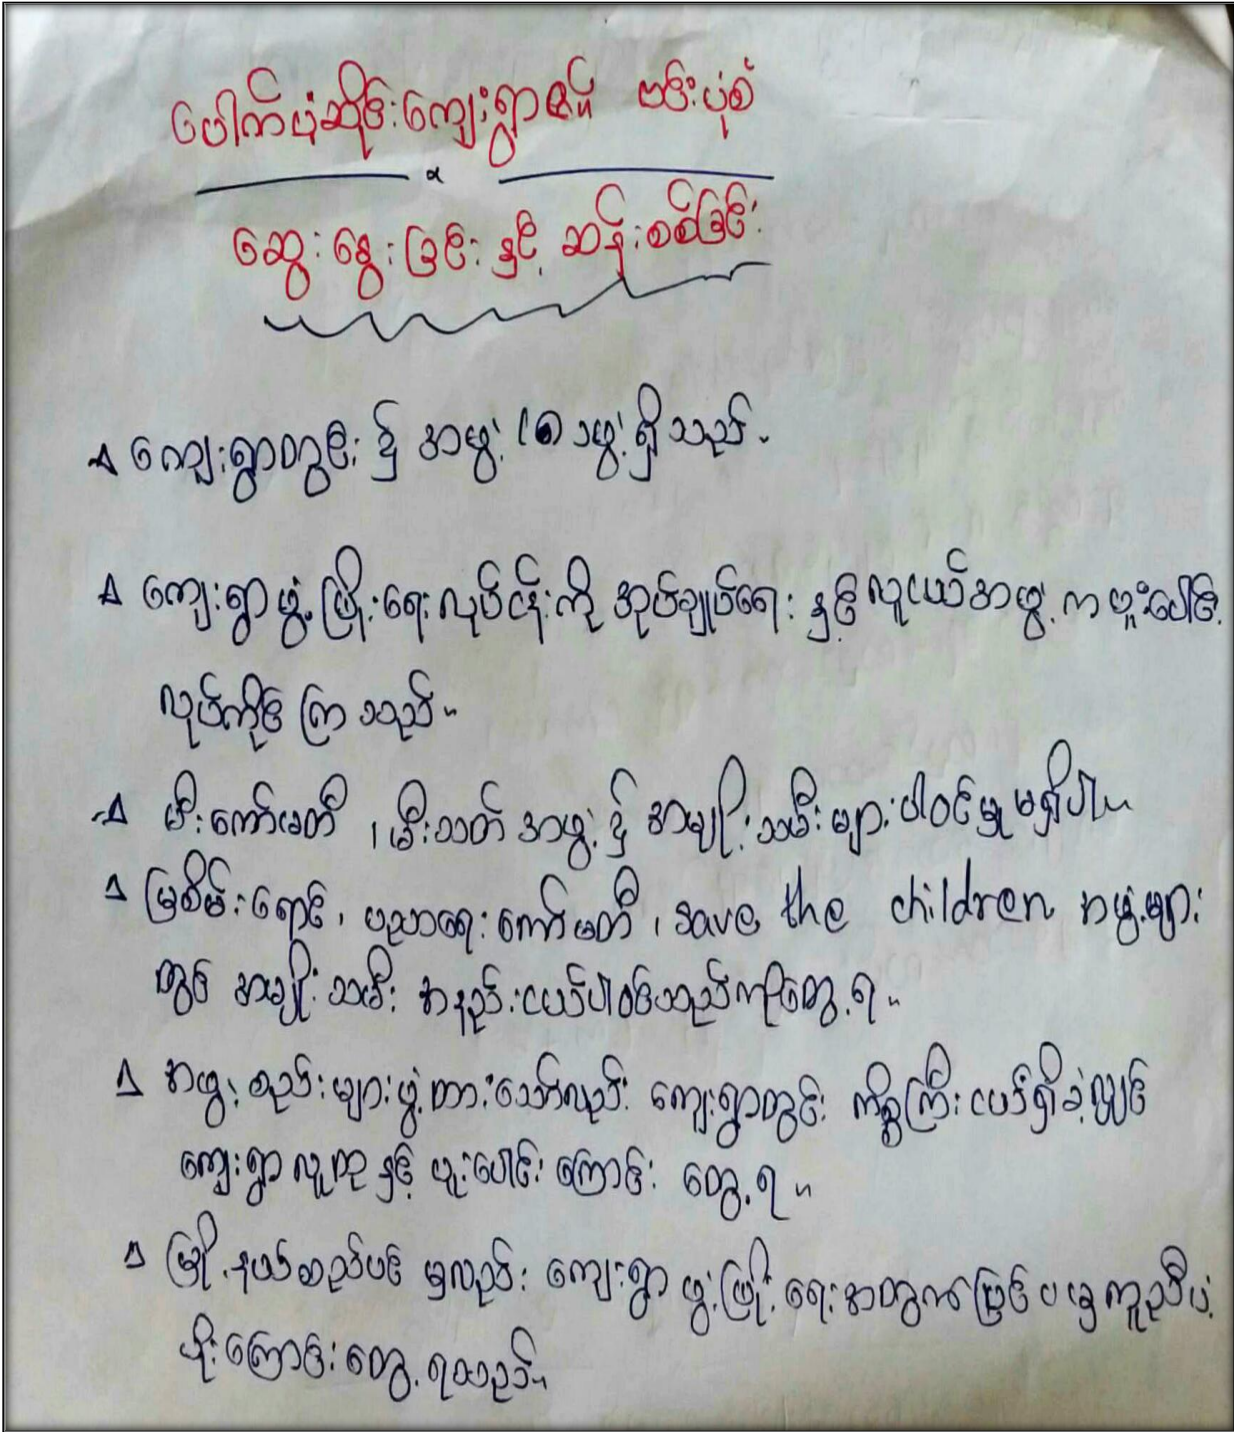 ပေါက်ပံ့ဆိုင်းကျေးရွာ၏ ဗင်းပုံစံ
ဆွေးနွေးခြင်းနှင့် ဆန်းစစ်ခြင်း
ကျေးရွာတွင်း ၌ အဖွဲ့ (၈) ဖွဲ့ ရှိသည်။
ကျေးရွာဖွံ့ဖြိုးရေးလုပ်ငန်းကို အုပ်ချုပ်ရေး နှင့် လူငယ်အဖွဲ့ က ပူးပေါင်း
လုပ်ကိုင်ကြသည်။
မီးကော်မတီ ၊ မီးသတ်အဖွဲ့ ၌ အမျိုးသမီးများပါဝင်မှု မရှိပါ။
မြစိမ်းရောင် ၊ ပညာရေးကော်မတီ ၊ save the children အဖွဲ့များ
တွင် အမျိုးသမီး အနည်းငယ်ပါဝင်သည်ကိုတွေ့ရ။
အဖွဲ့စည်းများဖွဲ့ထားသော်လည်း ကျေးရွာတွင်း ကိစ္စကြီးငယ်ရှိခဲ့လျှင်
ကျေးရွာလူထုနှင့် ပူးပေါင်းကြောင်း တွေ့ရ။
မြို့နယ်စည်ပင် မှလည်း ကျေးရွာ ဖွံ့ဖြိုးရေးအတွက် ပြင်ပမှ ကူညီပံ့
ပိုးကြောင်းတွေ့ရသည်။